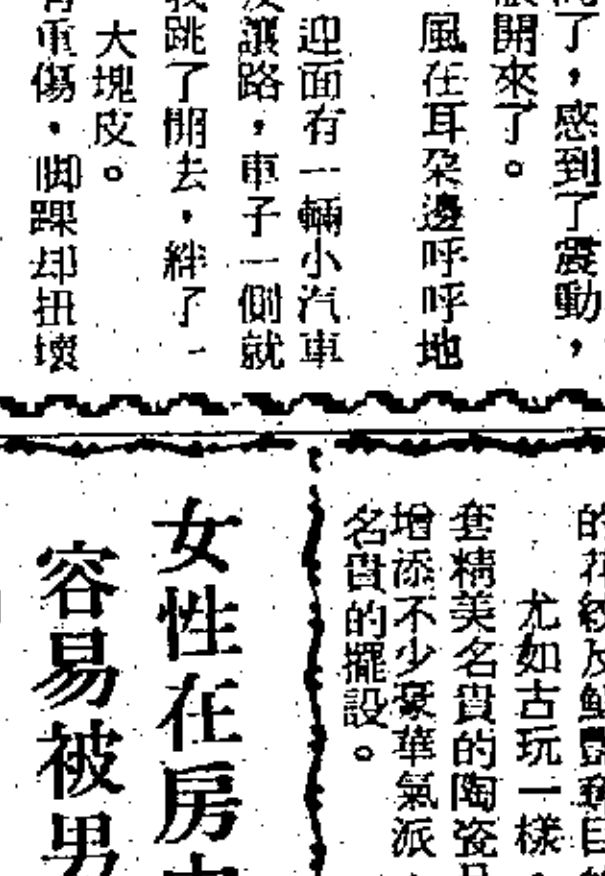 了，感到了震動，
開來了。
風在耳朶邊呼呼地
迎面有一輛小汽車
讓路，車子一側就
跳了開去，絆了一
大塊皮。
重傷，脚踝却扭壞
的花紋及鮮艷奪目
尤如古玩一樣，
套精美名貴的陶瓷
增添不少豪華氣派，
名貴的擺設。
女性在房
容易被男